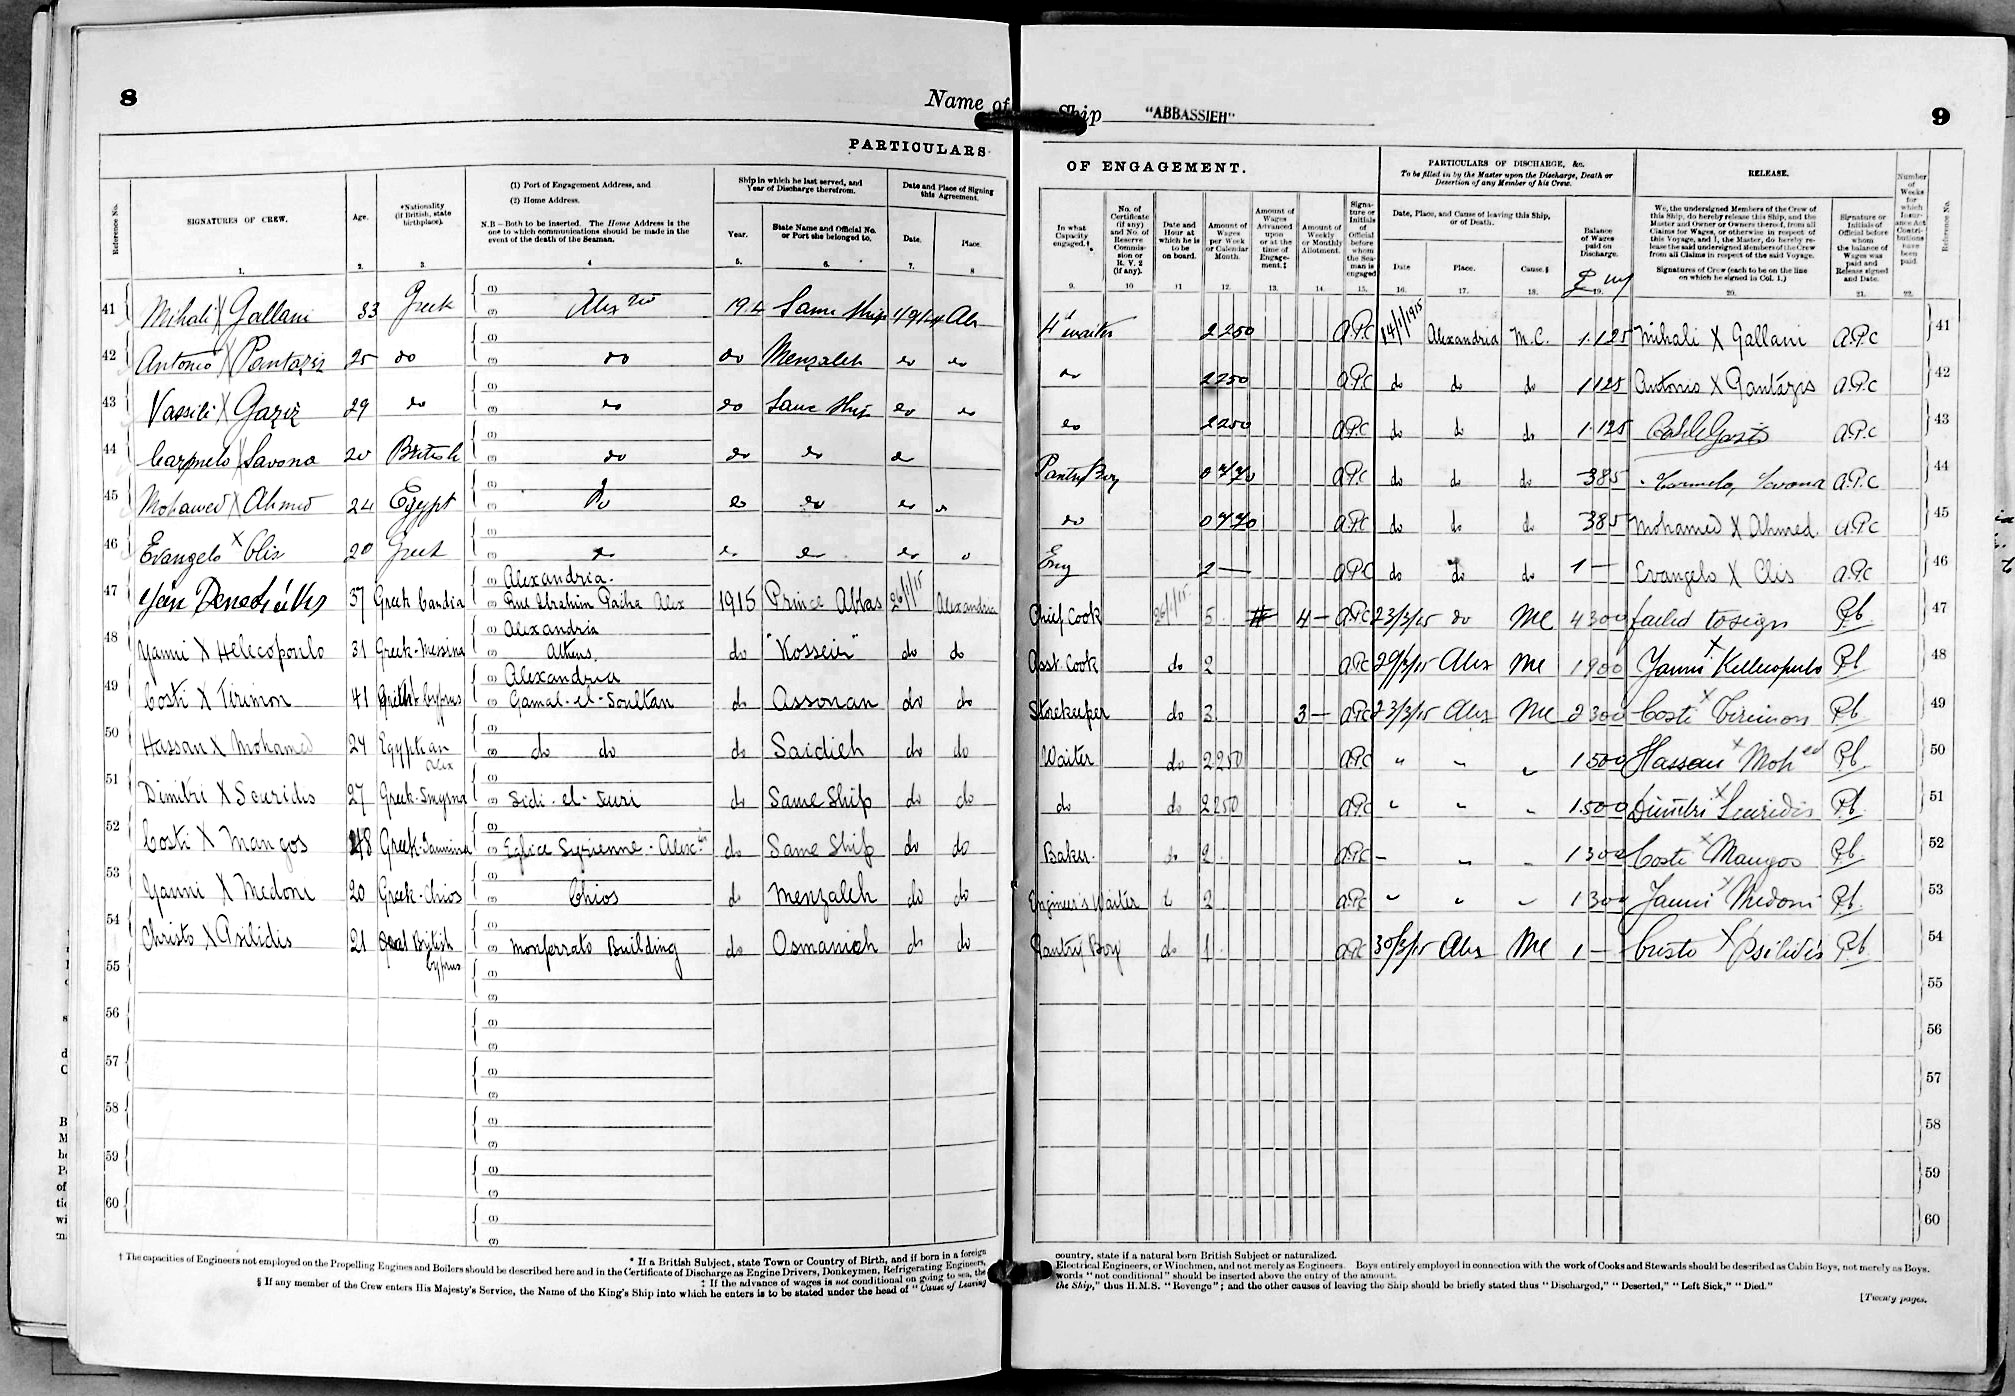 8
Name of Ship "ABBASSIEH"
9
PARTICULARS OF ENGAGEMENT.
PARTICULARS OF DISCHARGE, &c.
To be filled in by the Master upon the Discharge, Death or Desertion of any Member of his Crew.
RELEASE.
Reference No.
SIGNATURES OF CREW.
1.
Age.
2.
*Nationality (if British, state birthplace).
3.
(1) Port of Engagement Address, and
(2) Home Address.
N.B—Both to be inserted. The Home Address is the one to which communications should be made in the event of the death of the Seaman.
4
Ship in which he last served, and Year of Discharge therefrom.
Year.
5.
State Name and Official No. or Port she belonged to.
6.
Date and Place of Signing this Agreement.
Date.
7.
Place.
8
In what Capacity engaged.†
9.
No. of Certificate (if any) and No. of Reserve Commission or R. V. 2 (if any).
10
Date and Hour at which he is to be on board.
11
Amount of Wages per Week or Calendar Month.
12.
Amount of Wages Advanced upon or at the time of Engagement.‡
13.
Amount of Weekly or Monthly Allotment.
14.
Signature or Initials of Official before whom the Seaman is engaged
15.
Date, Place, and Cause of leaving this Ship, or of Death.
Date
16.
Place.
17.
Cause.§
18.
Balance of Wages paid on Discharge.
19.
We, the undersigned Members of the Crew of this Ship, do hereby release this Ship, and the Master and Owner or Owners thereof, from all Claims for Wages, or otherwise in respect of this Voyage, and I, the Master, do hereby release the said undersigned Members of the Crew from all Claims in respect of the said Voyage.
Signatures of Crew (each to be on the line on which he signed in Col. 1.)
20.
Signature or Initials of Official before whom the balance of Wages was paid and Release signed and Date.
21.
Number of Weeks for which Insurance Act Contributions have been paid.
22.
Reference No.
41 Mihali X Gallani 33 Greek Alex 1914 Same Ship Alx 2 250 A.P.C 14/1/1915 Alexandria M.C. 1.125 Mihali X Gallani A.P.C 41
42 Antonio X Pantazis 25 do do do Menzaleh do do do 2250 A.P.C do do do 1125 Antonio X Pantazis A.P.C 42
43 Vassili X Gaziz 29 do do do Same Ship do do do 2250 A.P.C do do do 1.125 A.P.C 43
44 Carmelo X Savona 20 British do do do do Pantry Boy 0770 A.P.C do do do 385 Carmelo, Savona A.P.C 44
45 Mohamed X Ahmed 24 Egypt Do do do do do do 0770 A.P.C do do do 385 Mohamed X Ahmed A.P.C 45
46 Evangelo X Clis 20 Greek do do do do do 2— A.P.C do do do 1— Evangelo X Clis A.P.C 46
47 37 Greek Candia (1) Alexandria. (2) Rue Ibrahim Pacha Alex 1915 Prince Abbas 26/1/15 Alexandria Chief Cook 26/1/15 5. 4— A.P.C 23/3/15 do MC 4300 failed to sign 47
48 Yanni X Helecopoulo 31 Greek-Messina (1) Alexandria (2) Athens. do "Kosseir" do do Asst Cook do 2 A.P.C Alex MC 1900 Yanni X Kellecopulo 48
49 Costi X Tirimon 41 Cyprus (1) Alexandria (2) Gamal-el-Soultan do Assouan do do Storekeeper do 3. 3— A.P.C 23/3/15 Alex MC 2300 Costi X Tirimon 49
50 Hassan X Mohamed 24 Egyptian Alex do do do Saidieh do do Waiter do 2250 A.P.C " " " 1500 Hassan X Mohed 50
51 Dimitri X Scuridis 27 Greek-Smyrna do Same Ship do do do do 2250 A.P.C " " " 1500 Dimitri X Scuridis 51
52 Costi X Mangos 48 Greek-Jannina Eglice Syrienne - Alex do Same Ship do do Baker. do 2. A.P.C " " " 1300 Costi X Mangos 52
53 Yanni X Medoni 20 Greek-Chios Chios do Menzaleh do do Engineer's Waiter do 2 A.P.C " " " 1300 Yanni X Medoni 53
54 Christo X Psilidis 21 British Cyprus Monferrato Building do Osmanieh do do Pantry Boy do 1. A.P.C 30/3/15 Alex MC 1— Cristo X Psilidis 54
55 55
56 56
57 57
58 58
59 59
60 60
* If a British Subject, state Town or Country of Birth, and if born in a foreign country, state if a natural born British Subject or naturalized.
† The capacities of Engineers not employed on the Propelling Engines and Boilers should be described here and in the Certificate of Discharge as Engine Drivers, Donkeymen, Refrigerating Engineers, Electrical Engineers, or Winchmen, and not merely as Engineers. Boys entirely employed in connection with the work of Cooks and Stewards should be described as Cabin Boys, not merely as Boys.
‡ If the advance of wages is not conditional on going to sea, the words "not conditional" should be inserted above the entry of the amount.
§ If any member of the Crew enters His Majesty's Service, the Name of the King's Ship into which he enters is to be stated under the head of "Cause of Leaving the Ship," thus H.M.S. "Revenge"; and the other causes of leaving the Ship should be briefly stated thus "Discharged," "Deserted," "Left Sick," "Died."
[Twenty pages.